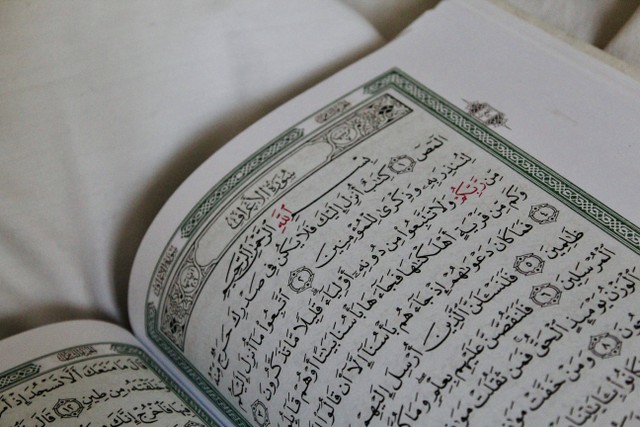 سُورَةُ الْأَعْرَافِ
بِسْمِ اللَّهِ الرَّحْمَٰنِ الرَّحِيمِ
الٓمٓصٓ ١ كِتَٰبٌ أُنزِلَ إِلَيْكَ فَلَا يَكُن فِي صَدْرِكَ حَرَجٌ
لِتُنذِرَ بِهِۦ وَذِكْرَىٰ لِلْمُؤْمِنِينَ ٢ ٱتَّبِعُوا۟ مَآ أُنزِلَ
مِّن رَّبِّكُمْ وَلَا تَتَّبِعُوا۟ مِن دُونِهِۦٓ أَوْلِيَآءَ ۗ قَلِيلًا مَّا تَذَكَّرُونَ ٣
وَكَم مِّن قَرْيَةٍ أَهْلَكْنَٰهَا فَجَآءَهَا بَأْسُنَا بَيَٰتًا أَوْ هُمْ ٤
فَمَا كَانَ دَعْوَىٰهُمْ إِذْ جَآءَهُم بَأْسُنَآ إِلَّآ أَن قَالُوٓا۟
ظَٰلِمِينَ ٥ فَلَنَسْـَٔلَنَّ ٱلَّذِينَ أُرْسِلَ إِلَيْهِمْ
ٱلْمُرْسَلِينَ ٦ فَلَنَقُصَّنَّ عَلَيْهِم بِعِلْمٍ وَمَا
يَوْمَئِذٍ ٱلْحَقُّ فَمَن ثَقُلَتْ
وَمَنْ خَفَّتْ
مَا مَنَعَكَ أَلَّا تَسْجُدَ إِذْ
مِن طِينٍ ١٢ قَالَ
فَٱخْرُجْ إِنَّكَ